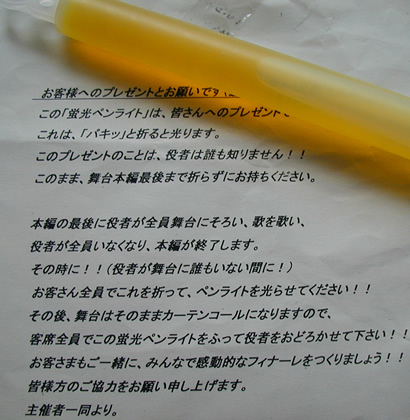 お客様へのプレゼントとお願いです
この「蛍光ペンライト」は、皆さんへのプレゼント
これは、「パキッ」と折ると光ります。
このプレゼントのことは、役者は誰も知りません！！
このまま、舞台本編最後まで折らずにお持ちください。
本編の最後に役者が全員舞台にそろい、歌を歌い、
役者が全員いなくなり、本編が終了します。
その時に！！（役者が舞台に誰もいない間に！）
お客さん全員でこれを折って、ペンライトを光らせてください！！
その後、舞台はそのままカーテンコールになりますので、
客席全員でこの蛍光ペンライトをふって役者をおどろかせて下さい！！
お客さまもご一緒に、みんなで感動的なフィナーレをつくりましょう！！
皆様方のご協力をお願い申し上げます。
主催者一同より。